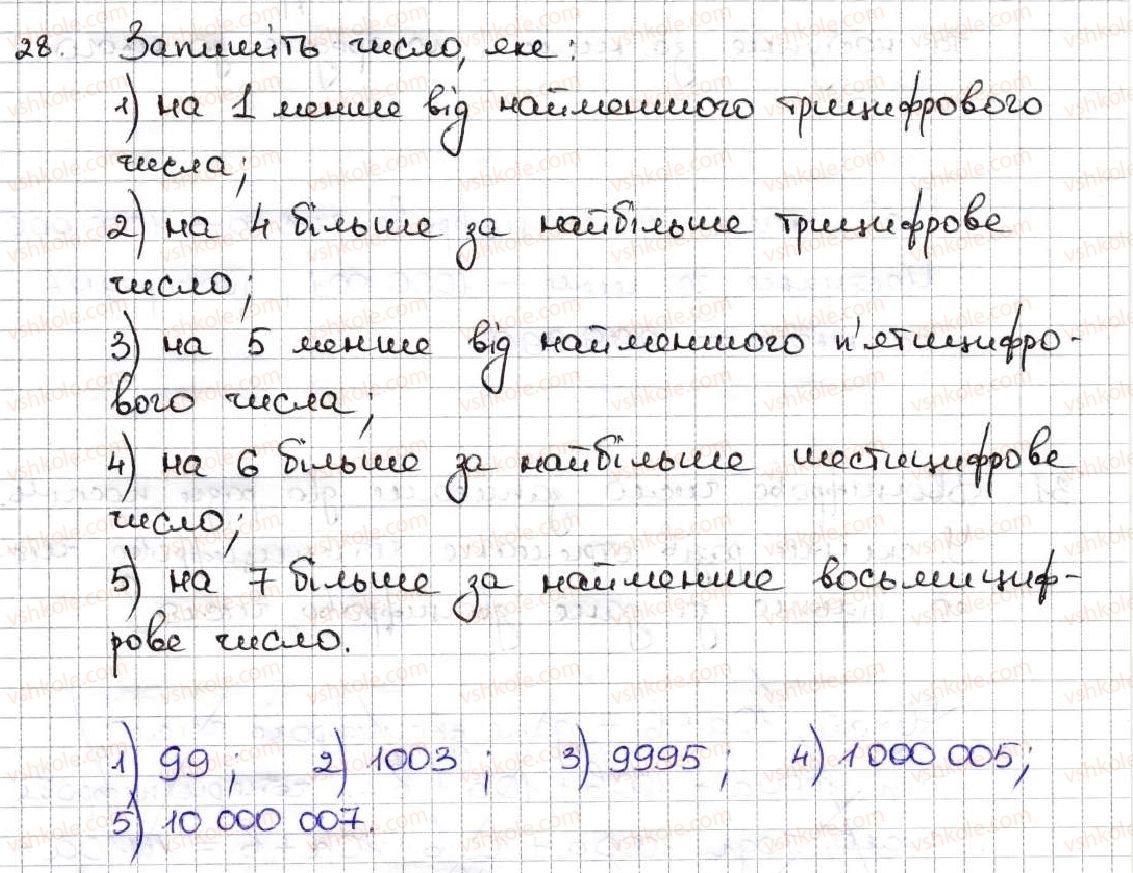 28. Запишіть число, яке:
1) на 1 менше від найменшого трицифрового
числа;
2) на 4 більше за найбільше трицифрове
число;
3) на 5 менше від найменшого п'ятицифро-
вого числа;
4) на 6 більше за найбільше шестицифрове
число;
5) на 7 більше за найменше восьмициф-
рове число.
1) 99; 2) 1003; 3) 9995; 4) 1 000 005;
5) 10 000 007.